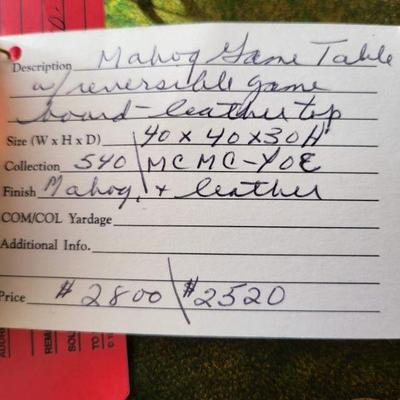 Description Mahog Game Table
w/ reversible game
board - leather top
Size (W x H x D) 40 x 40 x 30H
Collection 540 | MCMC-YOE
Finish Mahog. + leather
COM/COL Yardage
Additional Info.
Price $2800 \ $2520